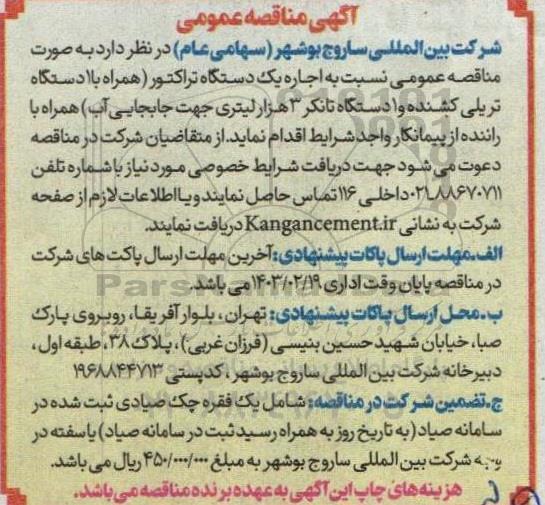 آگهی مناقصه عمومی
شرکت بین المللی ساروج بوشهر (سهامی عام) در نظر دارد به صورت
مناقصه عمومی نسبت به اجاره یک دستگاه تراکتور (همراه با ۱ دستگاه
تریلی کشنده و ۱ دستگاه تانکر ۳ هزار لیتری جهت جابجایی آب) همراه با
راننده از پیمانکار واجد شرایط اقدام نماید. از متقاضیان شرکت در مناقصه
دعوت می شود جهت دریافت شرایط خصوصی مورد نیاز با شماره تلفن
۰۲۱-۸۸۶۷۰۷۱۱ داخلی ۱۱۶ تماس حاصل نمایند و یا اطلاعات لازم از صفحه
شرکت به نشانی Kangancement.ir دریافت نمایند.
الف. مهلت ارسال پاکات پیشنهادی: آخرین مهلت ارسال پاکت های شرکت
در مناقصه پایان وقت اداری ۱۴۰۳/۰۲/۱۹ می باشد.
ب. محل ارسال پاکات پیشنهادی: تهران، بلوار آفریقا، روبروی پارک
صبا، خیابان شهید حسین بنیسی (فرزان غربی)، پلاک ۳۸، طبقه اول،
دبیرخانه شرکت بین المللی ساروج بوشهر، کدپستی ۱۹۶۸۸۴۴۷۱۳
ج. تضمین شرکت در مناقصه: شامل یک فقره چک صیادی ثبت شده در
سامانه صیاد (به تاریخ روز به همراه رسید ثبت در سامانه صیاد) یا سفته در
وجه شرکت بین المللی ساروج بوشهر به مبلغ ۴۵۰/۰۰۰/۰۰۰ ریال می باشد.
هزینه های چاپ این آگهی به عهده برنده مناقصه می باشد.